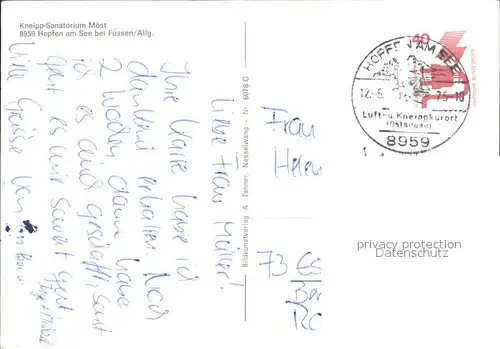 Kneipp-Sanatorium Möst
8959 Hopfen am See bei Füssen/Allg.
Liebe Frau Müller!
Ihre Karte habe ich
dankend erhalten. Noch
2 Wochen, dann habe
ich es auch geschafft, sonst
geht es mir soweit gut
Viele Grüsse von
Bildkunstverlag A. Tanner, Nesselwang Nr. 6078 C
40
HOPFEN AM SEE
75-10
Luft- u. Kneippkurort
(Ostallgäu)
8959
Frau
Helen
73 Es
privacy protection
Datenschutz